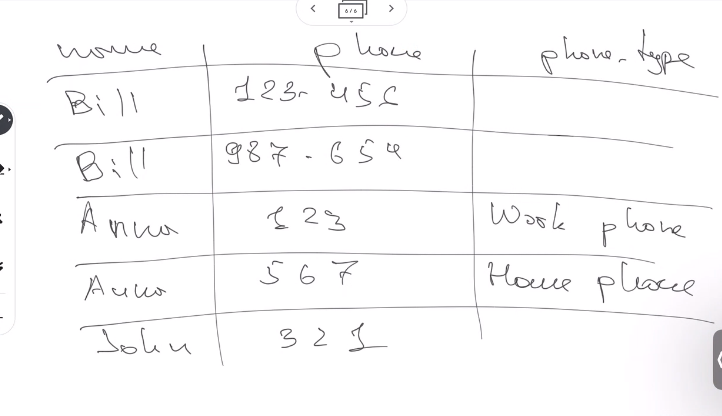 6/6
name phone phone-type
Bill 123-456
Bill 987-654
Anna 123 Work phone
Anna 567 Home phone
John 321